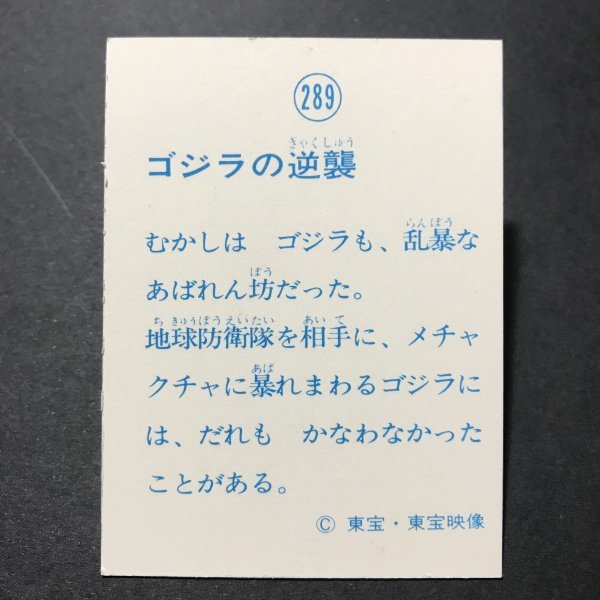 289
ぎゃくしゅう
ゴジラの逆襲
らんぼう
むかしは　ゴジラも、乱暴な
ぼう
あばれん坊だった。
ちきゅうぼうえいたい　あいて
地球防衛隊を相手に、メチャ
あば
クチャに暴れまわるゴジラに
は、だれも　かなわなかった
ことがある。
© 東宝・東宝映像